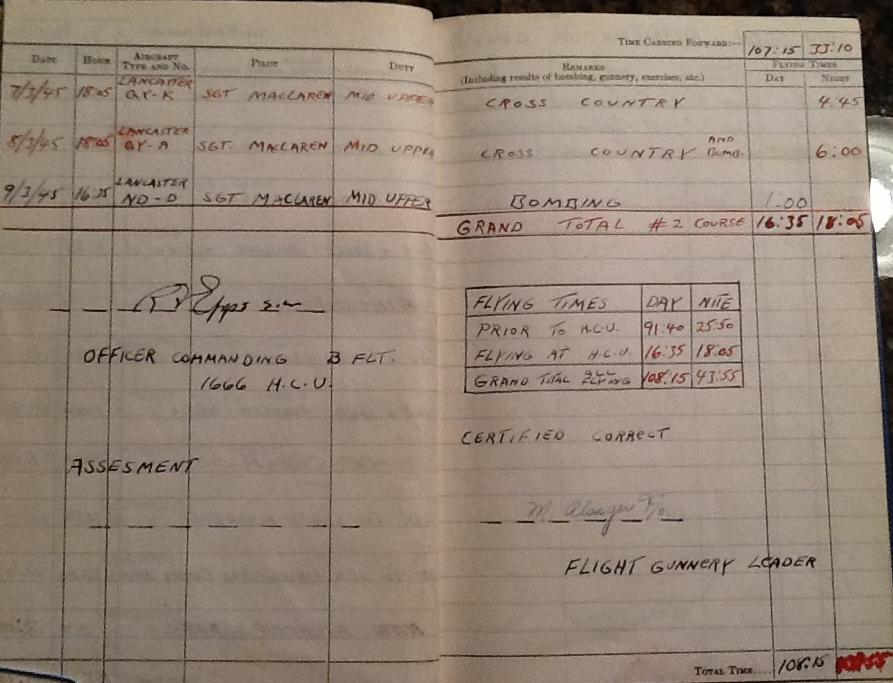 TIME CARRIED FORWARD:— 107:15 33:10
DATE HOUR AIRCRAFT TYPE AND NO. PILOT DUTY REMARKS (Including results of bombing, gunnery, exercises, etc.) FLYING TIMES DAY NIGHT
7/3/45 18:05 LANCASTER QY-K SGT MACLAREN MID UPPER CROSS COUNTRY 4.45
8/3/45 18:05 LANCASTER QY-A SGT. MACLAREN MID UPPER CROSS COUNTRY AND BOMB. 6:00
9/3/45 16:35 LANCASTER ND-D SGT MACLAREN MID UPPER BOMBING 1.00
GRAND TOTAL #2 COURSE 16:35 18:05
OFFICER COMMANDING B FLT.
1666 H.C.U.
ASSESMENT
FLYING TIMES DAY NITE
PRIOR TO H.C.U. 91.40 25.50
FLYING AT H.C.U. 16:35 18:05
GRAND TOTAL ALL FLYING 108:15 43:55
CERTIFIED CORRECT
FLIGHT GUNNERY LEADER
TOTAL TIME.... 108:15